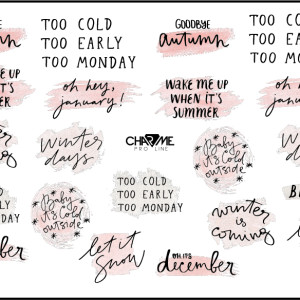 TOO COLD
TOO EARLY
TOO MONDAY
GOODBYE
autumn
TOO COLD
TOO EARLY
TOO MONDAY
WAKE ME UP
WHEN IT'S
SUMMER
oh hey,
january!
WAKE ME UP
WHEN IT'S
SUMMER
oh hey,
january!
winter
coming
winter
days
CHARME
PRO LINE
Baby
it's cold
outside
winter
days
Baby
it's cold
outside
TOO COLD
TOO EARLY
TOO MONDAY
winter
is
coming
december
let it
snow
OH, IT'S
december
let